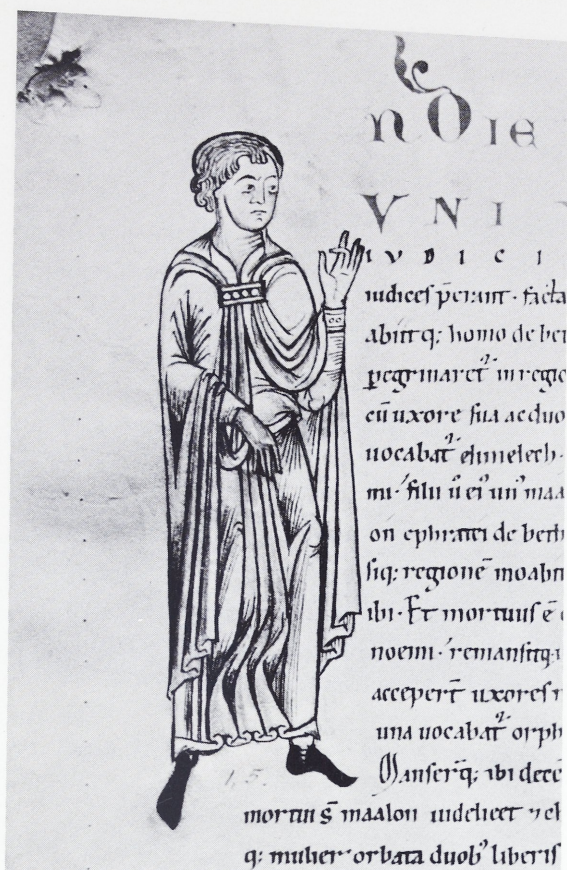 N DIE
VNI
IVDICI
iudices p̄erant · facta
abiitq; homo de bet
ꝑegrinaret᷑ in regio
cū uxore sua ac duo
uocabat᷑ elimelech ·
mi · filii ū ei᷒ un᷒ maa
on ephratei de beth
siq; regionē moabit
ibi · Et mortuus ē e
noemi · remansitq;
acceper̄t uxores
una uocabat᷑ orph
Manser̄q; ibi decē
1,5.
mortui s̄ maalon uidelicet ⁊ ch
q; mulier orbata duob᷒ liberis